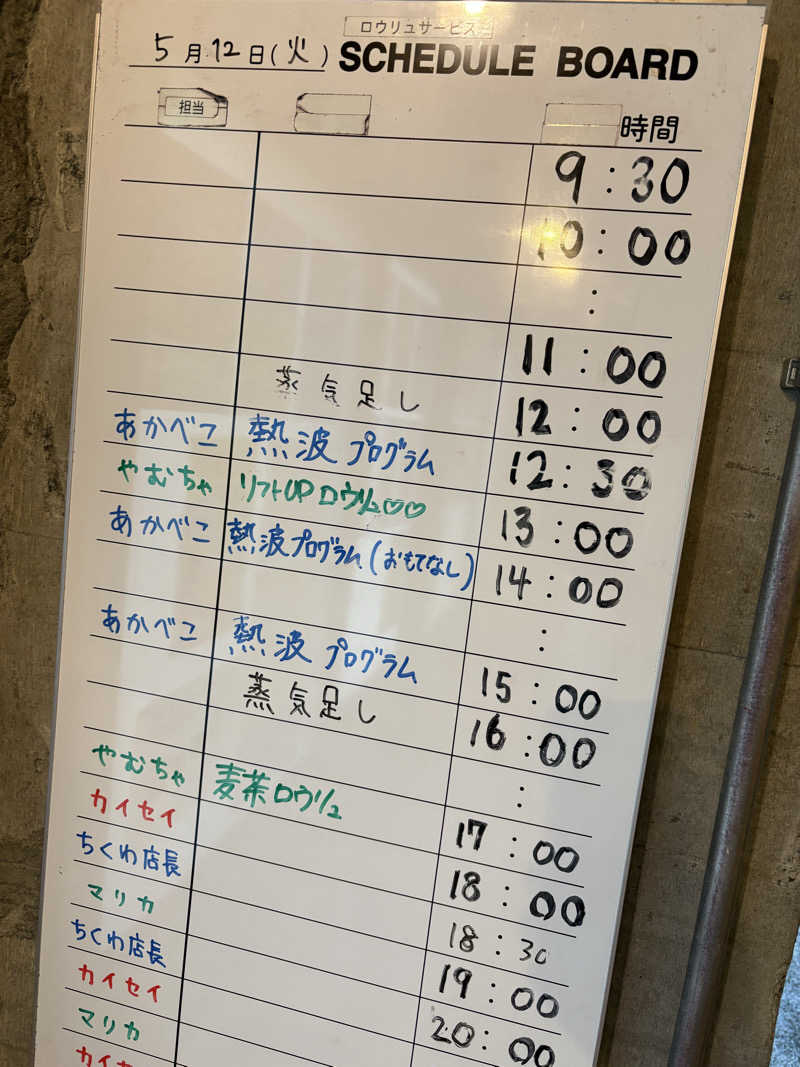 ロウリュサービス
5月12日(火) SCHEDULE BOARD
担当 時間
9:30
10:00
:
11:00
蒸気足し 12:00
あかべこ 熱波プログラム 12:30
やむちゃ リフトUPロウリュ♡♡ 13:00
あかべこ 熱波プログラム(おもてなし) 14:00
:
あかべこ 熱波プログラム 15:00
蒸気足し 16:00
:
やむちゃ 麦茶ロウリュ 17:00
カイセイ 18:00
ちくわ店長 18:30
マリカ 19:00
ちくわ店長 20:00
カイセイ
マリカ